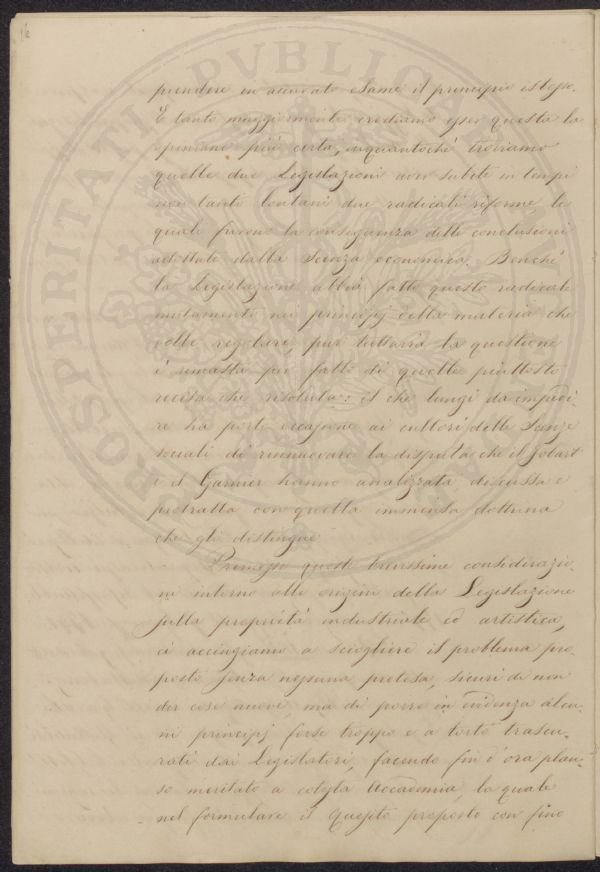 prendere in accurato esame il principio istesso.
E tanto maggiormente crediamo esser questa la
opinione più certa, inquantochè troviamo
quelle due Legislazioni aver subite in tempi
non tanto lontani due radicali riforme le
quali furono la conseguenza delle conclusioni
adottate dalla Scienza economica. Benchè
la Legislazione abbia fatto questo radicale
mutamento nei principj della materia che
volle regolare, pur tuttavia la questione
è rimasta per fatto di quelle piuttosto
recisa che risoluta: il che lungi da impedi-
re ha porto occasione ai cultori delle Scienze
sociali di rinnuovare la disputa che il Jobart
e il Garnier hanno analizzata discussa e
protratta con quella immensa dottrina
che gli distingue
Premesse queste brevissime considerazio-
ni intorno alle origini della Legislazione
sulla proprietà industriale ed artistica,
ci accingiamo a sciogliere il problema pro-
posto senza nessuna pretesa, sicuri di non
dir cose nuove, ma di porre in evidenza alcu-
ni principj forse troppo e a torto trascu-
rati dai Legislatori, facendo fin d'ora plau-
so meritato a cotesta Accademia, la quale
nel formulare il Quesito proposto con fino
PROSPERITATI PVBLICAE